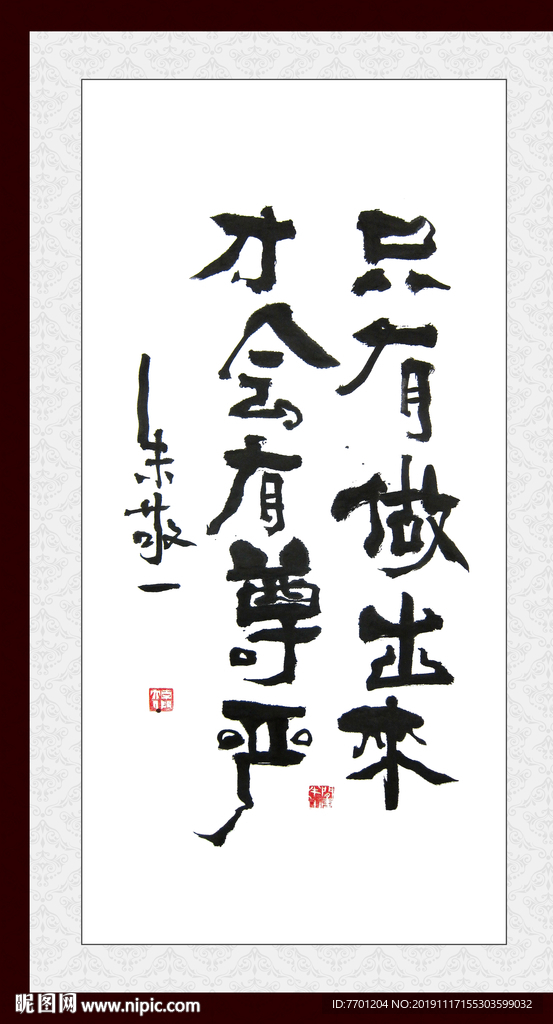 只有做出来
才会有尊严
朱敬一
昵图网 www.nipic.com
ID:7701204 NO:20191117155303599032